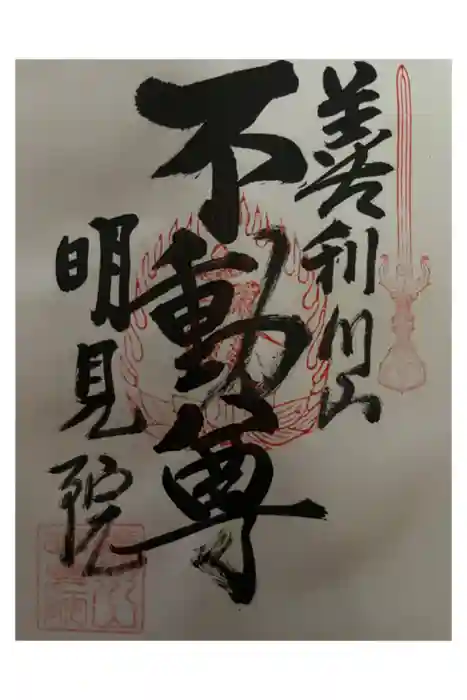 善利川山
不動尊
明見院